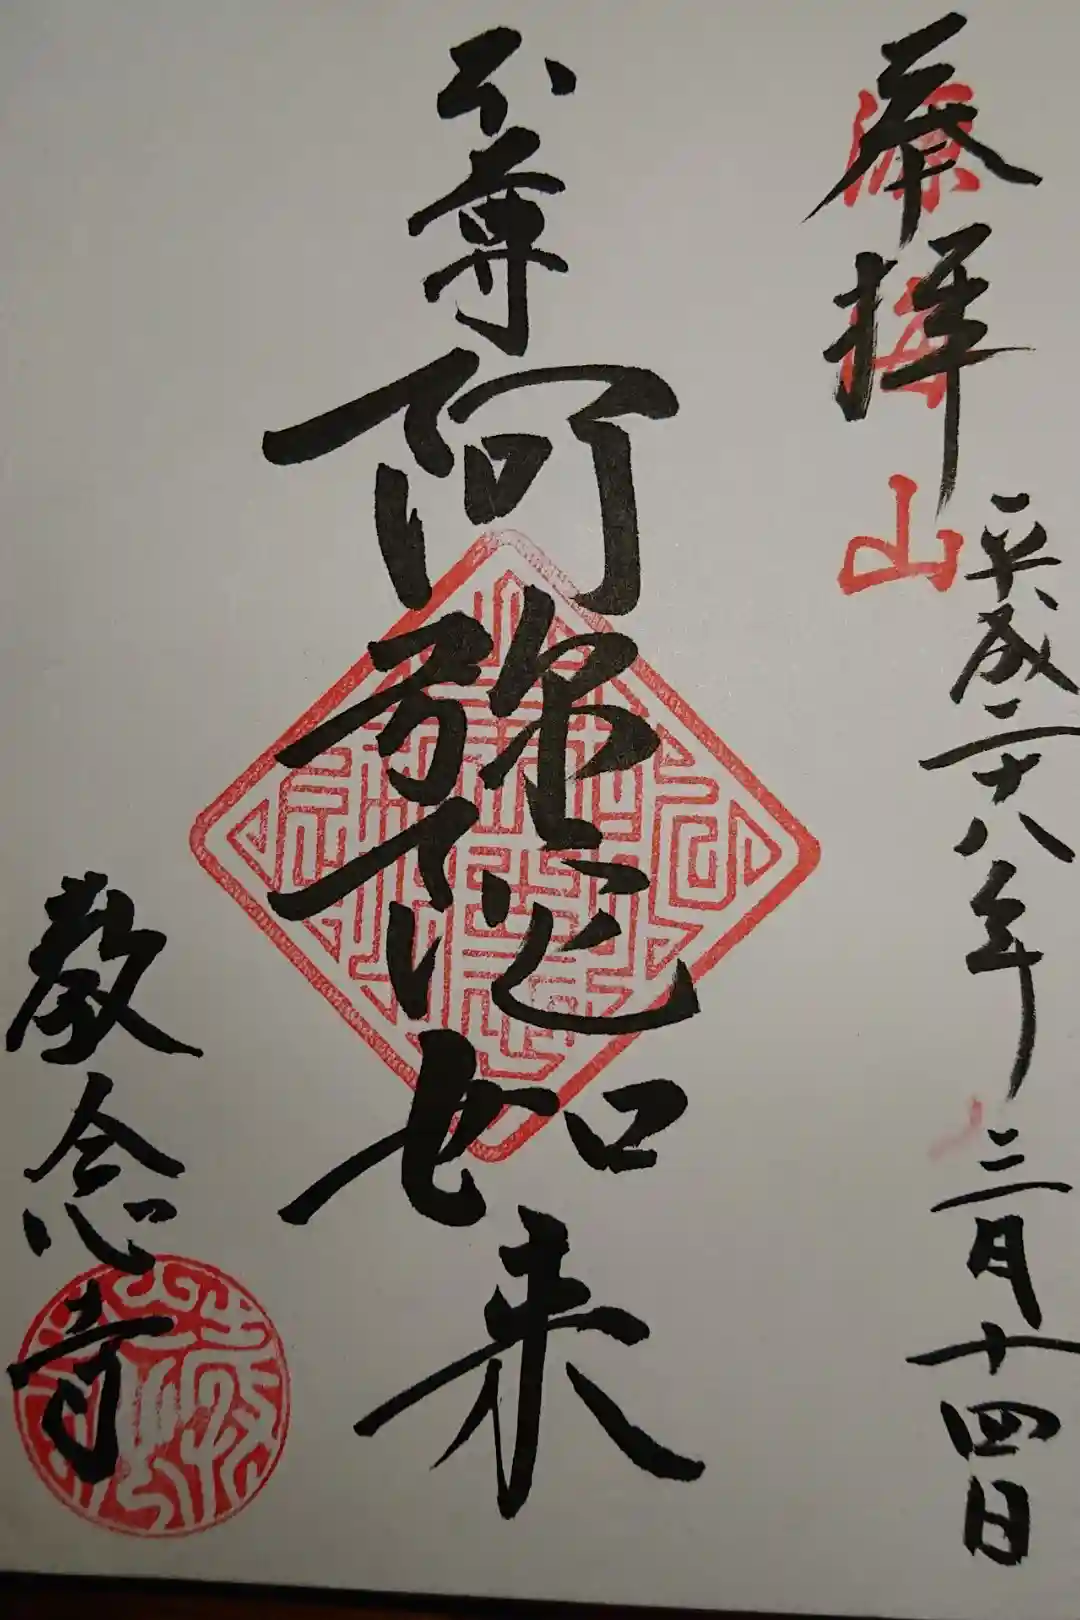 奉拝
山
平成二十八年三月十四日
本尊阿弥陀如来
教念寺